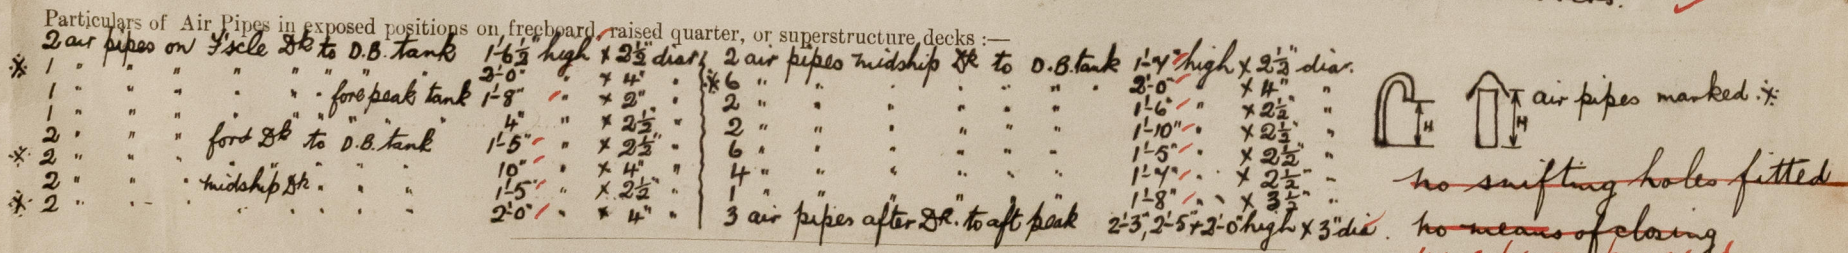 Particulars of Air Pipes in exposed positions on freeboard, raised quarter, or superstructure decks :—
2 air pipes on F'scle Dk to D.B. tank 1'-6½" high × 2½" diar
※ 1 " " " " " " " " 2'-0" " × 4" "
1 " " " " " " fore peak tank 1'-8" " × 2" "
1 " " " " " " " " 4" " × 2½" "
2 " " " ford Dk to D.B. tank 1'-5" " × 2½" "
※ 2 " " " " " " " " 10" " × 4" "
2 " " " midship Dk " " " 1'-5" " × 2½" "
※ 2 " " " " " " " 2'-0" " × 4" "
2 air pipes midship Dk to D.B. tank 1'-7" high × 2½" diar.
※ 6 " " " " " " 2'-0" " × 4" "
2 " " " " " " 1'-6" " × 2½" "
2 " " " " " " 1'-10" " × 2½" "
6 " " " " " " 1'-5" " × 2½" "
4 " " " " " " 1'-7" " × 2½" "
1 " " " " " " 1'-8" " × 3½" "
3 air pipes after Dk. to aft peak 2'-3", 2'-5" + 2'-0" high × 3" dia.
H H air pipes marked ※
no snifting holes fitted
no means of closing